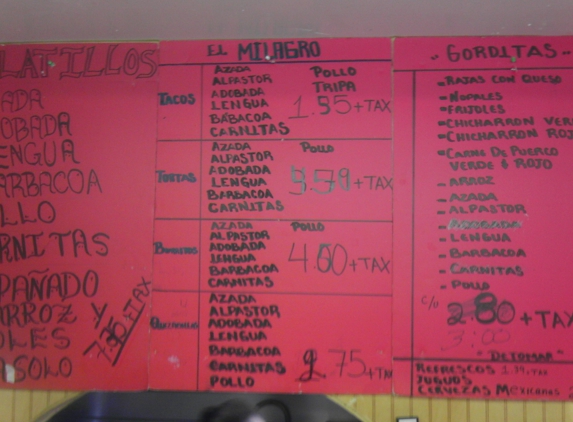 LATILLOS
ADA
OBADA
ENGUA
ARBACOA
LLO
RNITAS
PAÑADO
ARROZ Y
OLES
SOLO
7.95+TAX
EL MILAGRO
TACOS
AZADA
ALPASTOR
ADOBADA
LENGUA
BABACOA
CARNITAS
POLLO
TRIPA
+TAX
TORTAS
AZADA
ALPASTOR
ADOBADA
LENGUA
BARBACOA
CARNITAS
POLLO
+TAX
AZADA
ALPASTOR
ADOBADA
LENGUA
BARBACOA
CARNITAS
POLLO
4.60+TAX
AZADA
ALPASTOR
ADOBADA
LENGUA
BARBACOA
CARNITAS
POLLO
2.75+TAX
- GORDITAS -
- RAJAS CON QUESO
- NOPALES
- FRIJOLES
- CHICHARRON VER
- CHICHARRON ROJ
- CARNE DE PUERCO
VERDE & ROJO
- ARROZ
- AZADA
- ALPASTOR
- ADOBADA
- LENGUA
- BARBACOA
- CARNITAS
- POLLO
C/U
2.80+TAX
3:00
- "DETOMAR"
REFRESCOS
JUGUOS
CERVEZAS MEXICANAS